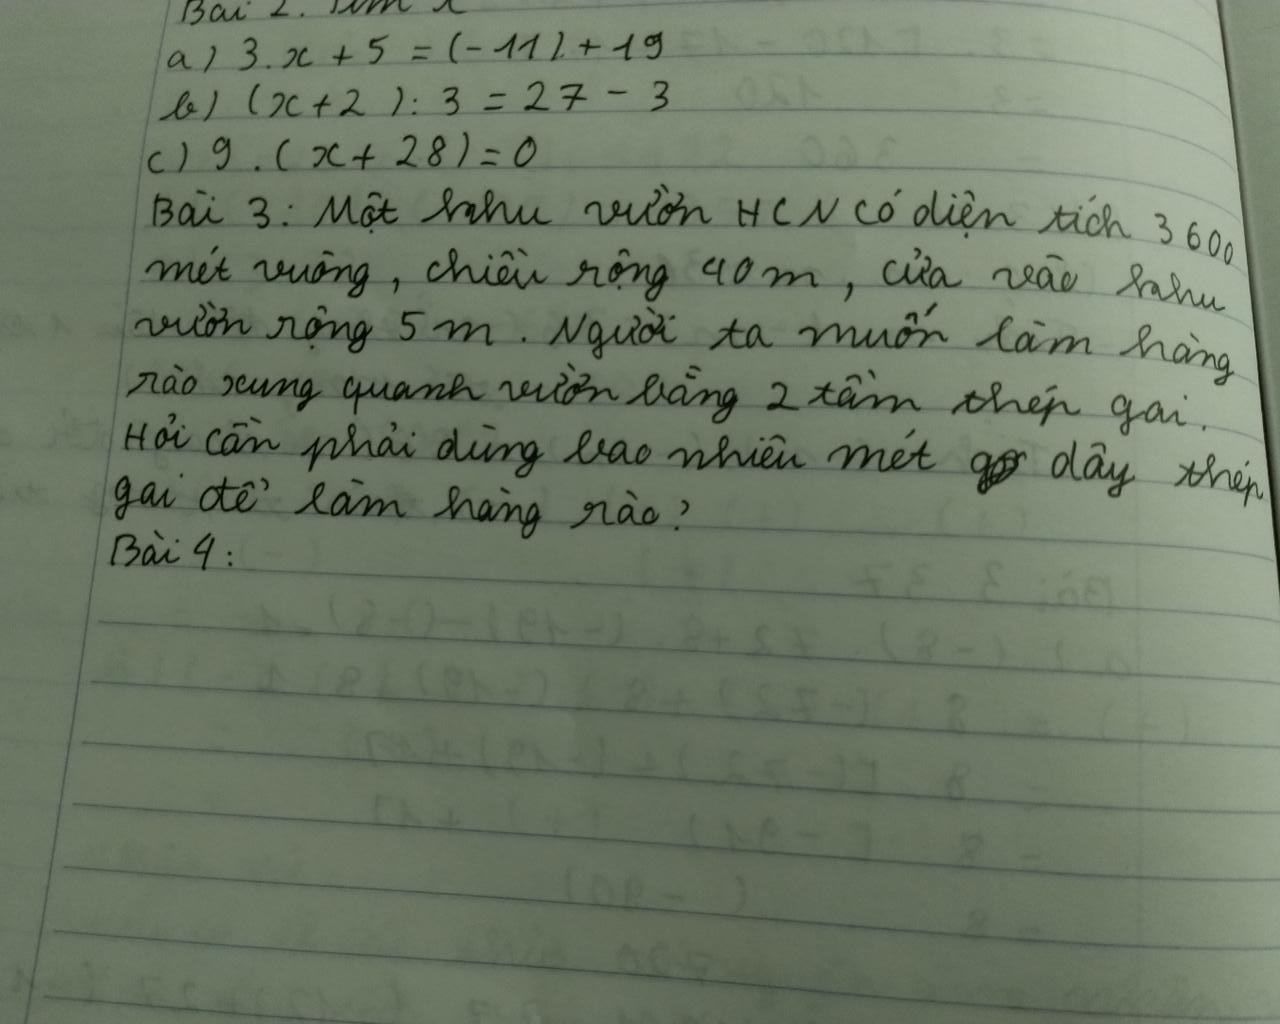 Bài 2. Tìm x
a) 3.x + 5 = (-11) + 19
b) (x+2) : 3 = 27 - 3
c) 9 . ( x + 28) = 0
Bài 3: Một khu vườn HCN có diện tích 3600
mét vuông, chiều rộng 40m, cửa vào khu
vườn rộng 5m. Người ta muốn làm hàng
rào xung quanh vườn bằng 2 tầm thép gai.
Hỏi cần phải dùng bao nhiêu mét dây thép
gai để làm hàng rào?
Bài 4: